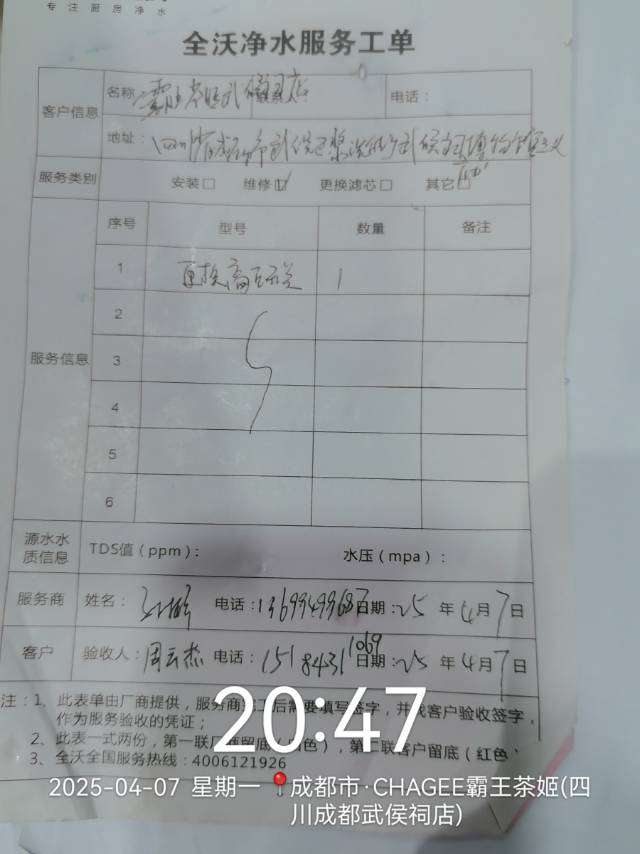 专注厨房净水
全沃净水服务工单
客户信息
名称: 霸王茶姬武侯祠店 电话:
地址: 四川省成都市武侯区浆洗街
服务类别 安装□ 维修☑ 更换滤芯□ 其它□
服务信息
序号 型号 数量 备注
1 更换高压开关 1
2
3
4
5
6
源水水质信息 TDS值(ppm): 水压(mpa):
服务商 姓名: 电话: 日期: 25 年 4 月 7 日
客户 验收人: 周云杰 电话: 15184311069 日期: 25 年 4 月 7 日
注: 1、此表单由厂商提供,服务商完工后需要填写签字,并找客户验收签字,
作为服务验收的凭证;
2、此表一式两份,第一联厂商留底(白色),第二联客户留底(红色
3、全沃全国服务热线:4006121926
20:47
2025-04-07 星期一 成都市·CHAGEE霸王茶姬(四
川成都武侯祠店)